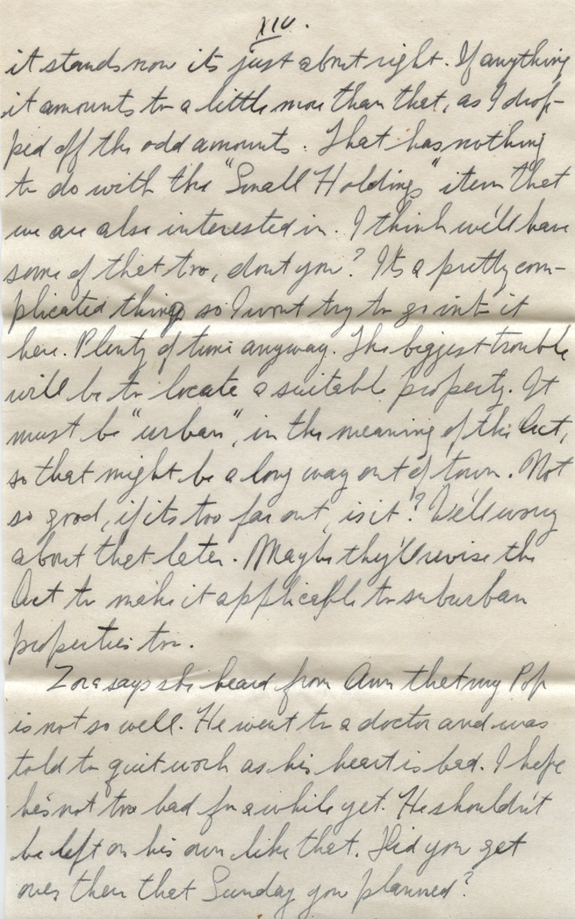 XIV.
it stands now its just about right. If anything
it amounts to a little more than that, as I drop-
ped off the odd amounts. That has nothing
to do with the "Small Holdings" item that
we are also interested in. I think we'll have
some of that too, dont you? It's a pretty com-
plicated thing so I wont try to go into it
here. Plenty of time anyway. The biggest trouble
will be to locate a suitable property. It
must be "urban", in the meaning of the Act,
so that might be a long way out of town. Not
so good, if its too far out, is it? We'll worry
about that later. Maybe they'll revise the
Act to make it applicable to suburban
properties too.
Zora says she heard from Ann that my Pop
is not so well. He went to a doctor and was
told to quit work as his heart is bad. I hope
he's not too bad for a while yet. He shouldn't
be left on his own like that. Did you get
over there that Sunday you planned?